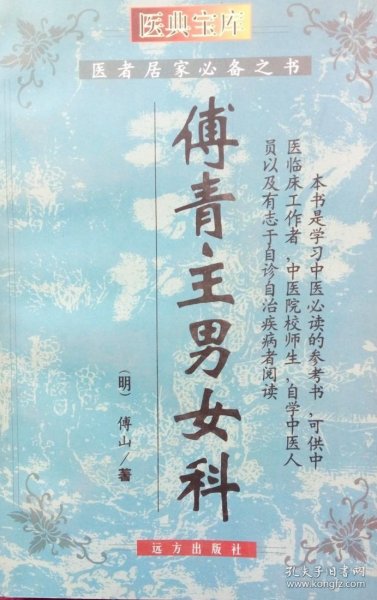 医典宝库
医者居家必备之书
傅青主男女科
本书是学习中医必读的参考书,可供中
医临床工作者,中医院校师生,自学中医人
员以及有志于自诊自治疾病者阅读
(明) 傅山/著
远方出版社
孔夫子旧书网
www.kongfz.com